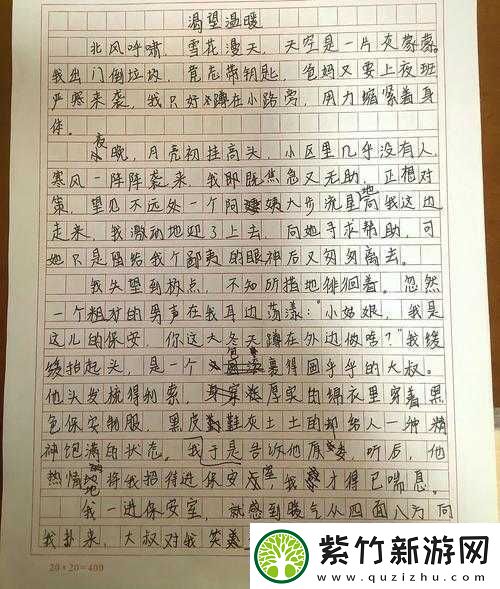 渴望温暖
北风呼啸，雪花漫天，天空是一片灰蒙蒙。
我出门倒垃圾，竟忘带钥匙，爸妈又要上夜班
严寒来袭，我只好蹲在小路旁，用力缩紧着身
体。
夜晚，月亮初挂高头，小区里几乎没有人，
寒风一阵阵袭来，我即既焦急又无助，正相对
策，望见不远处一个阿姨大步流星地向我这边
走来，我激动地迎了上去，向她寻求帮助，可
她只是留给我个鄙夷的眼神后又匆匆离去。
我失望到极点，不知所措地徘徊着。忽然
一个粗犷的男声在我耳边荡漾："小姑娘，我是
这儿的保安，你这大冬天蹲在外边做啥？"我缓
缓抬起头，是一个裹得圆乎乎的大叔。
他头发梳得利索，厚实的绵衣里穿着黑
色保安制服，黑皮鞋灰土土的却给人一种精
神饱满的状态。我于是告诉他原委，听后，他
热情地将我招待进保安室，我才得已喘息。
我一进保安室，就感到暖气从四面八方向
我扑来，大叔对我笑
20×20=400
紫竹新游网
www.quzizhu.com